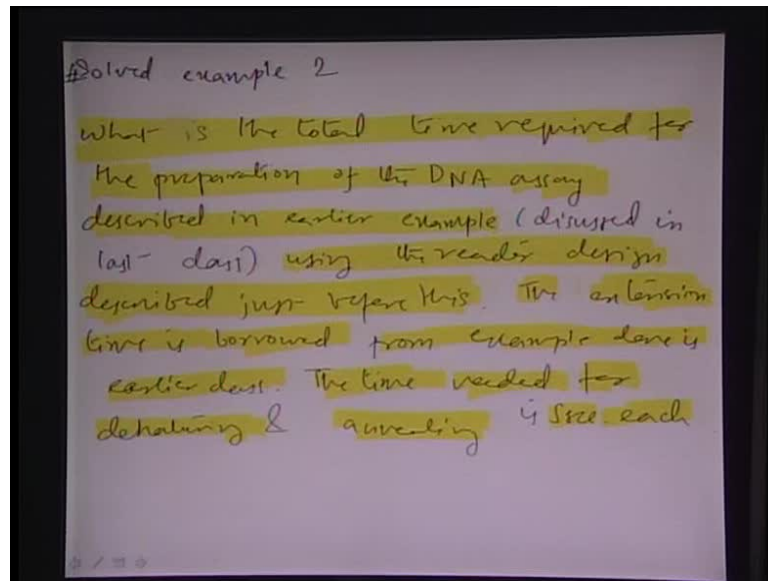 Solved example 2
What is the total time required for
the preparation of the DNA assay
described in earlier example (discussed in
last class) using the reader design
described just before this. The extension
time is borrowed from example done is
earlier class. The time needed for
denaturing & annealing is 5sec each